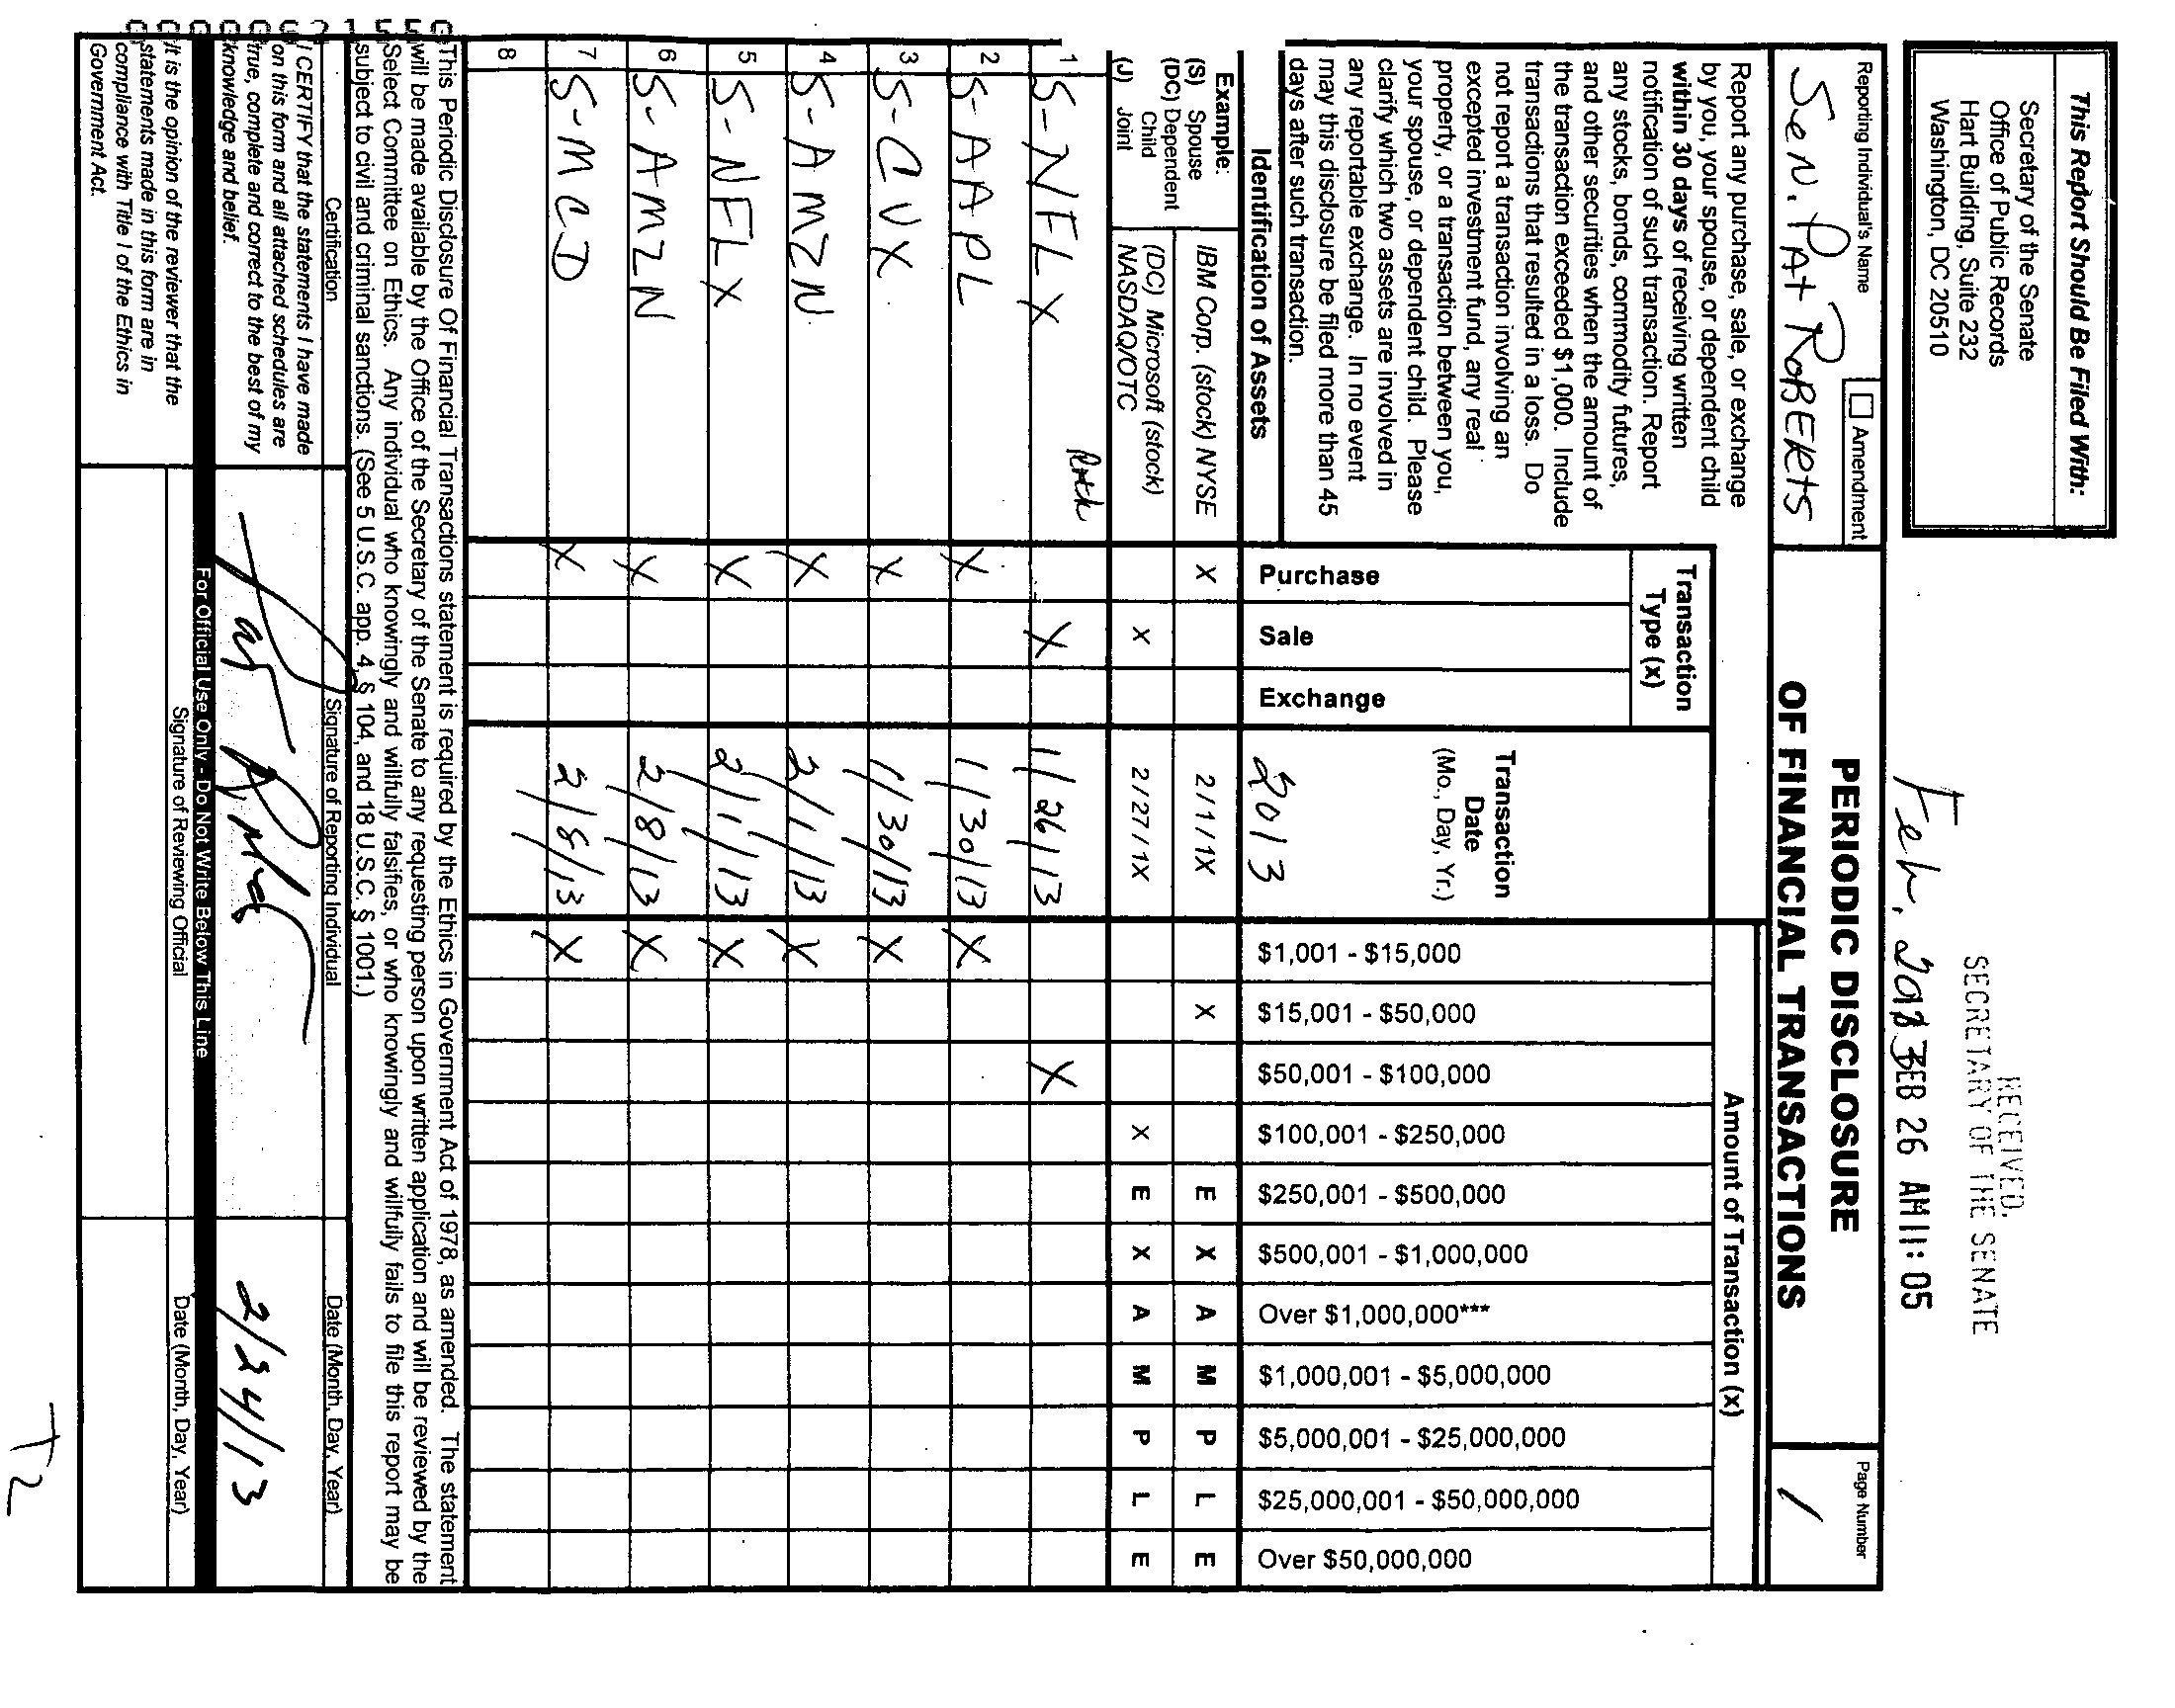 RECEIVED.
SECRETARY OF THE SENATE
Feb, 2013
FEB 26 AM 11: 05
This Report Should Be Filed With:
Secretary of the Senate
Office of Public Records
Hart Building, Suite 232
Washington, DC 20510
PERIODIC DISCLOSURE
OF FINANCIAL TRANSACTIONS
Reporting Individual's Name
Amendment
Sen. Pat Roberts
Page Number
1
Report any purchase, sale, or exchange
by you, your spouse, or dependent child
within 30 days of receiving written
notification of such transaction. Report
any stocks, bonds, commodity futures,
and other securities when the amount of
the transaction exceeded $1,000. Include
transactions that resulted in a loss. Do
not report a transaction involving an
excepted investment fund, any real
property, or a transaction between you,
your spouse, or dependent child. Please
clarify which two assets are involved in
any reportable exchange. In no event
may this disclosure be filed more than 45
days after such transaction.
Identification of Assets
Transaction
Type (x)
Purchase
Sale
Exchange
Transaction
Date
(Mo., Day, Yr.)
2013
Amount of Transaction (x)
$1,001 - $15,000
$15,001 - $50,000
$50,001 - $100,000
$100,001 - $250,000
$250,001 - $500,000
$500,001 - $1,000,000
Over $1,000,000***
$1,000,001 - $5,000,000
$5,000,001 - $25,000,000
$25,000,001 - $50,000,000
Over $50,000,000
Example:
(S) Spouse
(DC) Dependent
Child
(J) Joint
IBM Corp. (stock) NYSE X 2/1/1X X E X A M P L E
(DC) Microsoft (stock)
NASDAQ/OTC X 2/27/1X X E X A M P L E
1 S-NFLX Roth X 1/26/13 X
2 S-AAPL X 1/30/13 X
3 S-CVX X 1/30/13 X
4 S-AMZN X 2/1/13 X
5 S-NFLX X 2/1/13 X
6 S-AMZN X 2/8/13 X
7 S-MCD X 2/8/13 X
8
This Periodic Disclosure Of Financial Transactions statement is required by the Ethics in Government Act of 1978, as amended. The statement
will be made available by the Office of the Secretary of the Senate to any requesting person upon written application and will be reviewed by the
Select Committee on Ethics. Any individual who knowingly and willfully falsifies, or who knowingly and willfully fails to file this report may be
subject to civil and criminal sanctions. (See 5 U.S.C. app. 4, § 104, and 18 U.S.C. § 1001.)
Certification
Signature of Reporting Individual
Date (Month, Day, Year)
I CERTIFY that the statements I have made
on this form and all attached schedules are
true, complete and correct to the best of my
knowledge and belief.
2/24/13
For Official Use Only - Do Not Write Below This Line
It is the opinion of the reviewer that the
statements made in this form are in
compliance with Title I of the Ethics in
Government Act.
Signature of Reviewing Official
Date (Month, Day, Year)